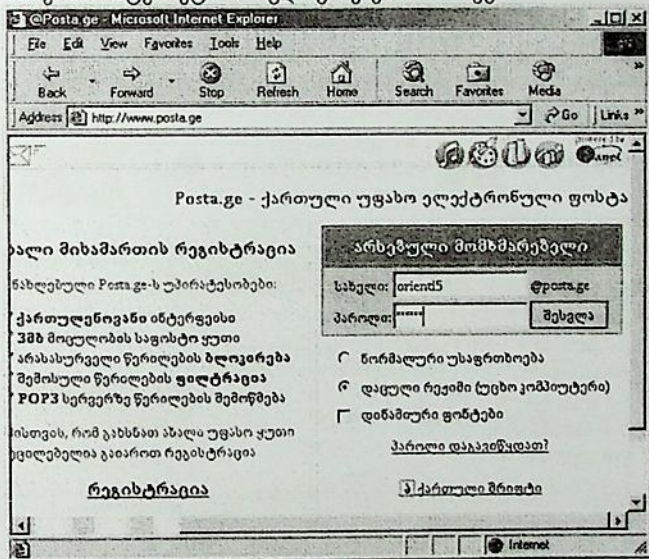 @Posta.ge - Microsoft Internet Explorer
File Edit View Favorites Tools Help
Back Forward Stop Refresh Home Search Favorites Media
Address http://www.posta.ge Go Links
powered by
Posta.ge - ქართული უფასო ელექტრონული ფოსტა
ალი მისამართის რეგისტრაცია
ნახლებული Posta.ge-ს უპირატესობები:
ქართულენოვანი ინტერფეისი
3მბ მოცულობის საფოსტო ყუთი
არასასურველი წერილების ბლოკირება
შემოსული წერილების ფილტრაცია
POP3 სერვერზე წერილების შემოწმება
ისთვის, რომ გახსნათ ახალი უფასო ყუთი
ცილებელია გაიაროთ რეგისტრაცია
რეგისტრაცია
არსებული მომხმარებელი
სახელი: orienti5 @posta.ge
პაროლი: ****** შესვლა
ნორმალური უსაფრთხოება
დაცული რეჟიმი (უცხო კომპიუტერი)
დინამიური ფონტები
პაროლი დაგავიწყდათ?
ქართული შრიფტი
Internet